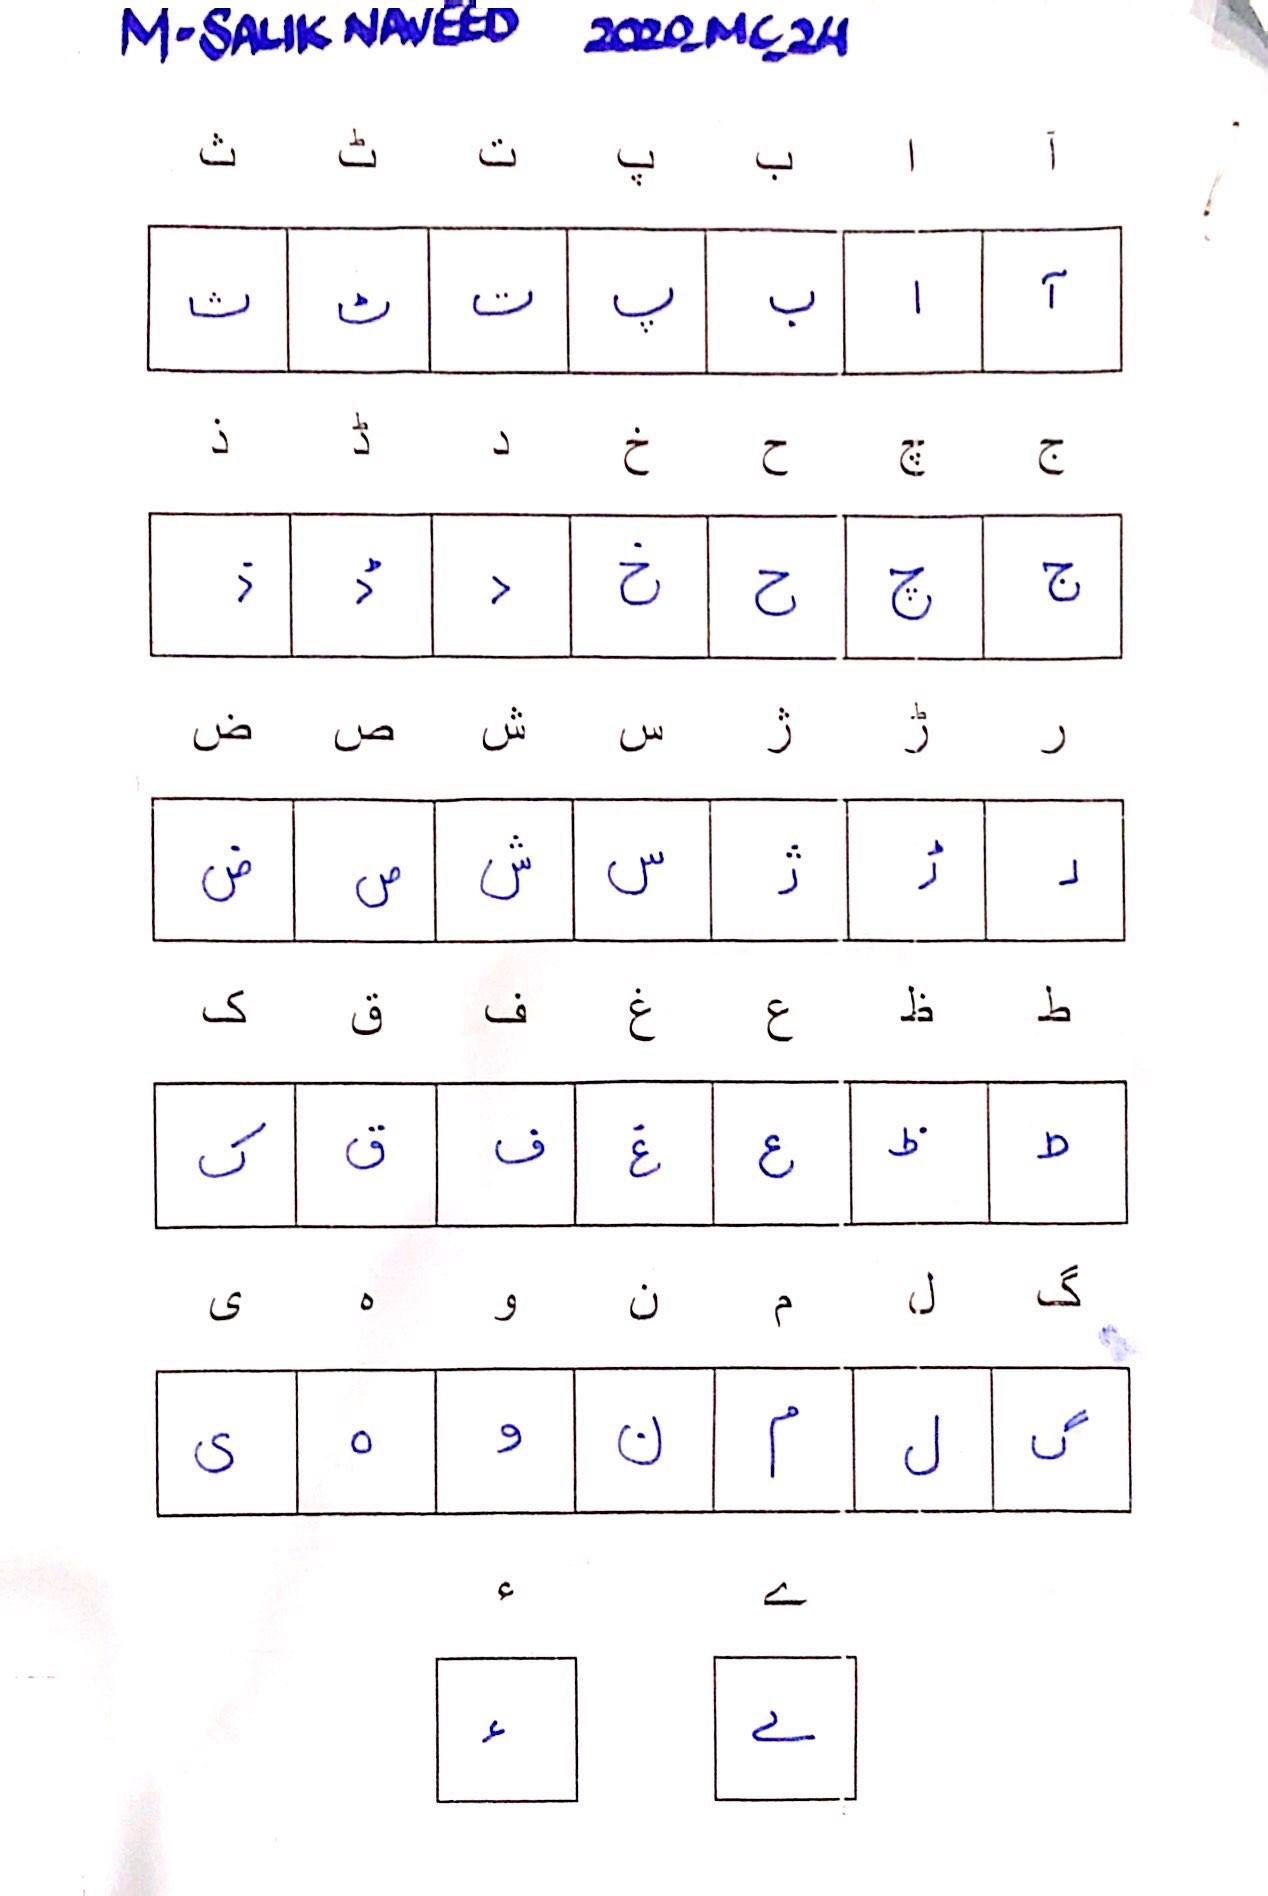 M-SALIK NAVEED 2020-MC-24
آ ا ب پ ت ٹ ث
آ ا ب پ ت ٹ ث
ج چ ح خ د ڈ ذ
ج چ ح خ د ڈ ذ
ر ڑ ژ س ش ص ض
ر ڑ ژ س ش ص ض
ط ظ ع غ ف ق ک
ط ظ ع غ ف ق ک
گ ل م ن و ہ ی
گ ل م ن و ہ ی
ے ء
ے ء